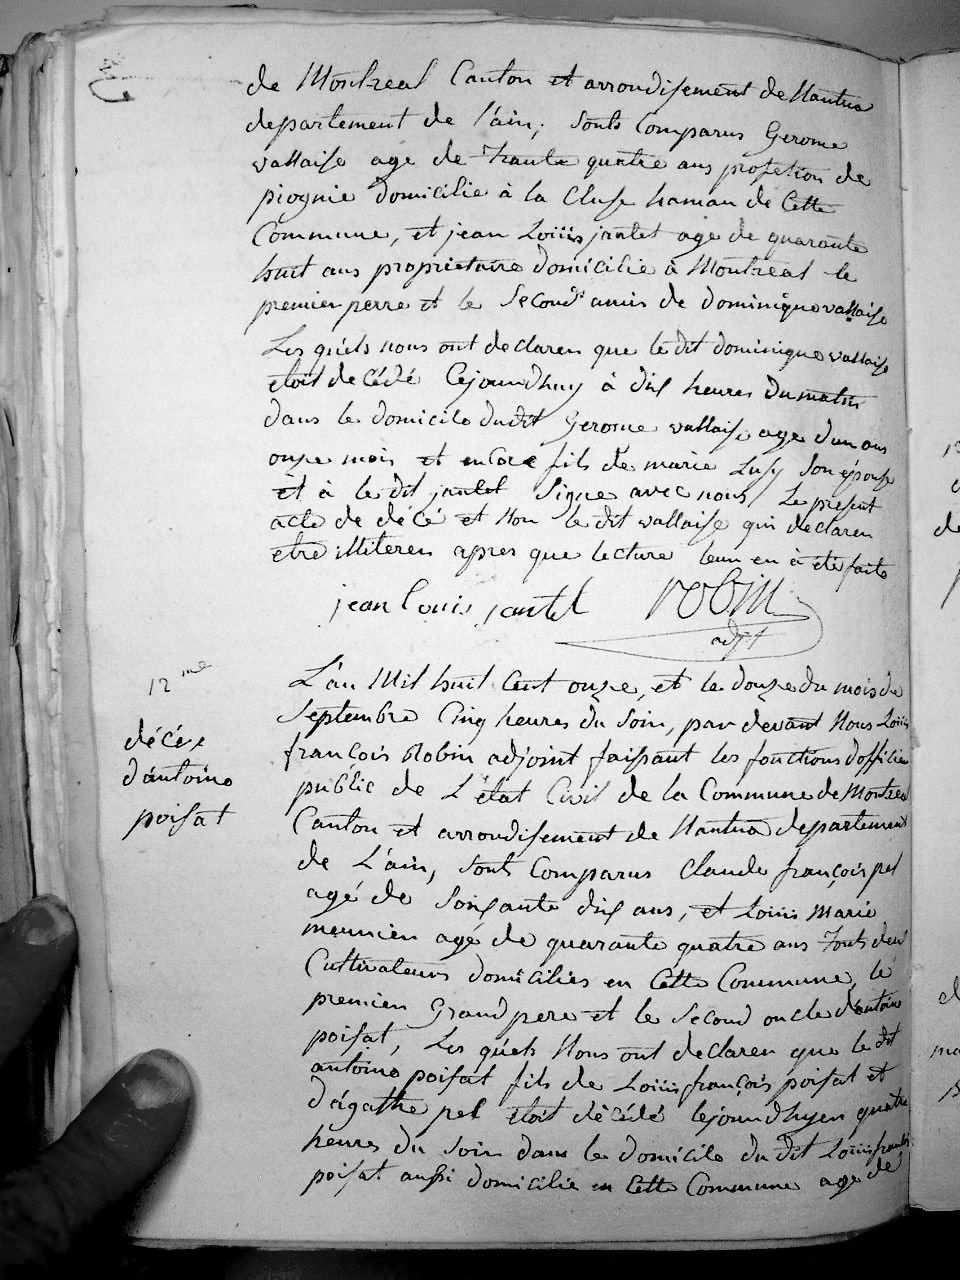 de Montreal Canton et arrondisement de Nantua
departement de l'ain; sonts Comparus Gerome
vallaise age de trante quatre ans profetion de
piognie domicilie à la Cluse haman de Cette
Commune, et jean Loiiis jantet age de quarante
huit ans propriétaire domicilie à Montreal le
premier perre et le Second amis de dominique vallaise
Les quels nous ont declaren que le dit dominique vallaise
etoit decédé Cejourdhuy à dix heures du matin
dans le domicile dudit Gerome vallaise age dun ans
onze mois et encore fils de marie Lusy son épouse
et à le dit jantet Signe avec nous Le present
acte de décé et Non le dit vallaise qui declaren
etre illiteren apres que lecture leur en à été faite
jean louis jantet robin
adjt
12 me
décéz
d'antoine
poisat
L'an Mil huit Cent onze, et le douze du mois de
Septembre Cinq heures du Soir, par devant Nous Loiiis
françois Robin adjoint faissant les fonctions d'officier
public de L'état Civil de la Commune de Montreal
Canton et arrondisement de Nantua departement
de L'ain, sonts Comparus Claude françois pel
agé de Soixante dix ans, et Loiiis Marie
meunien agé de quarante quatre ans touts deux
Cultivateurs domiciliés en Cette Commune, le
premien Grand pere et le Second oncle d'antoine
poisat, Les quels Nous ont declaren que le dit
antoine poisat fils de Loiiis françois poisat et
d'agathe pel etoit décédé Cejourdhyen quatre
heures du Soir dans le domicile du dit Loiiis françois
poisat aussi domicilie en Cette Commune age de